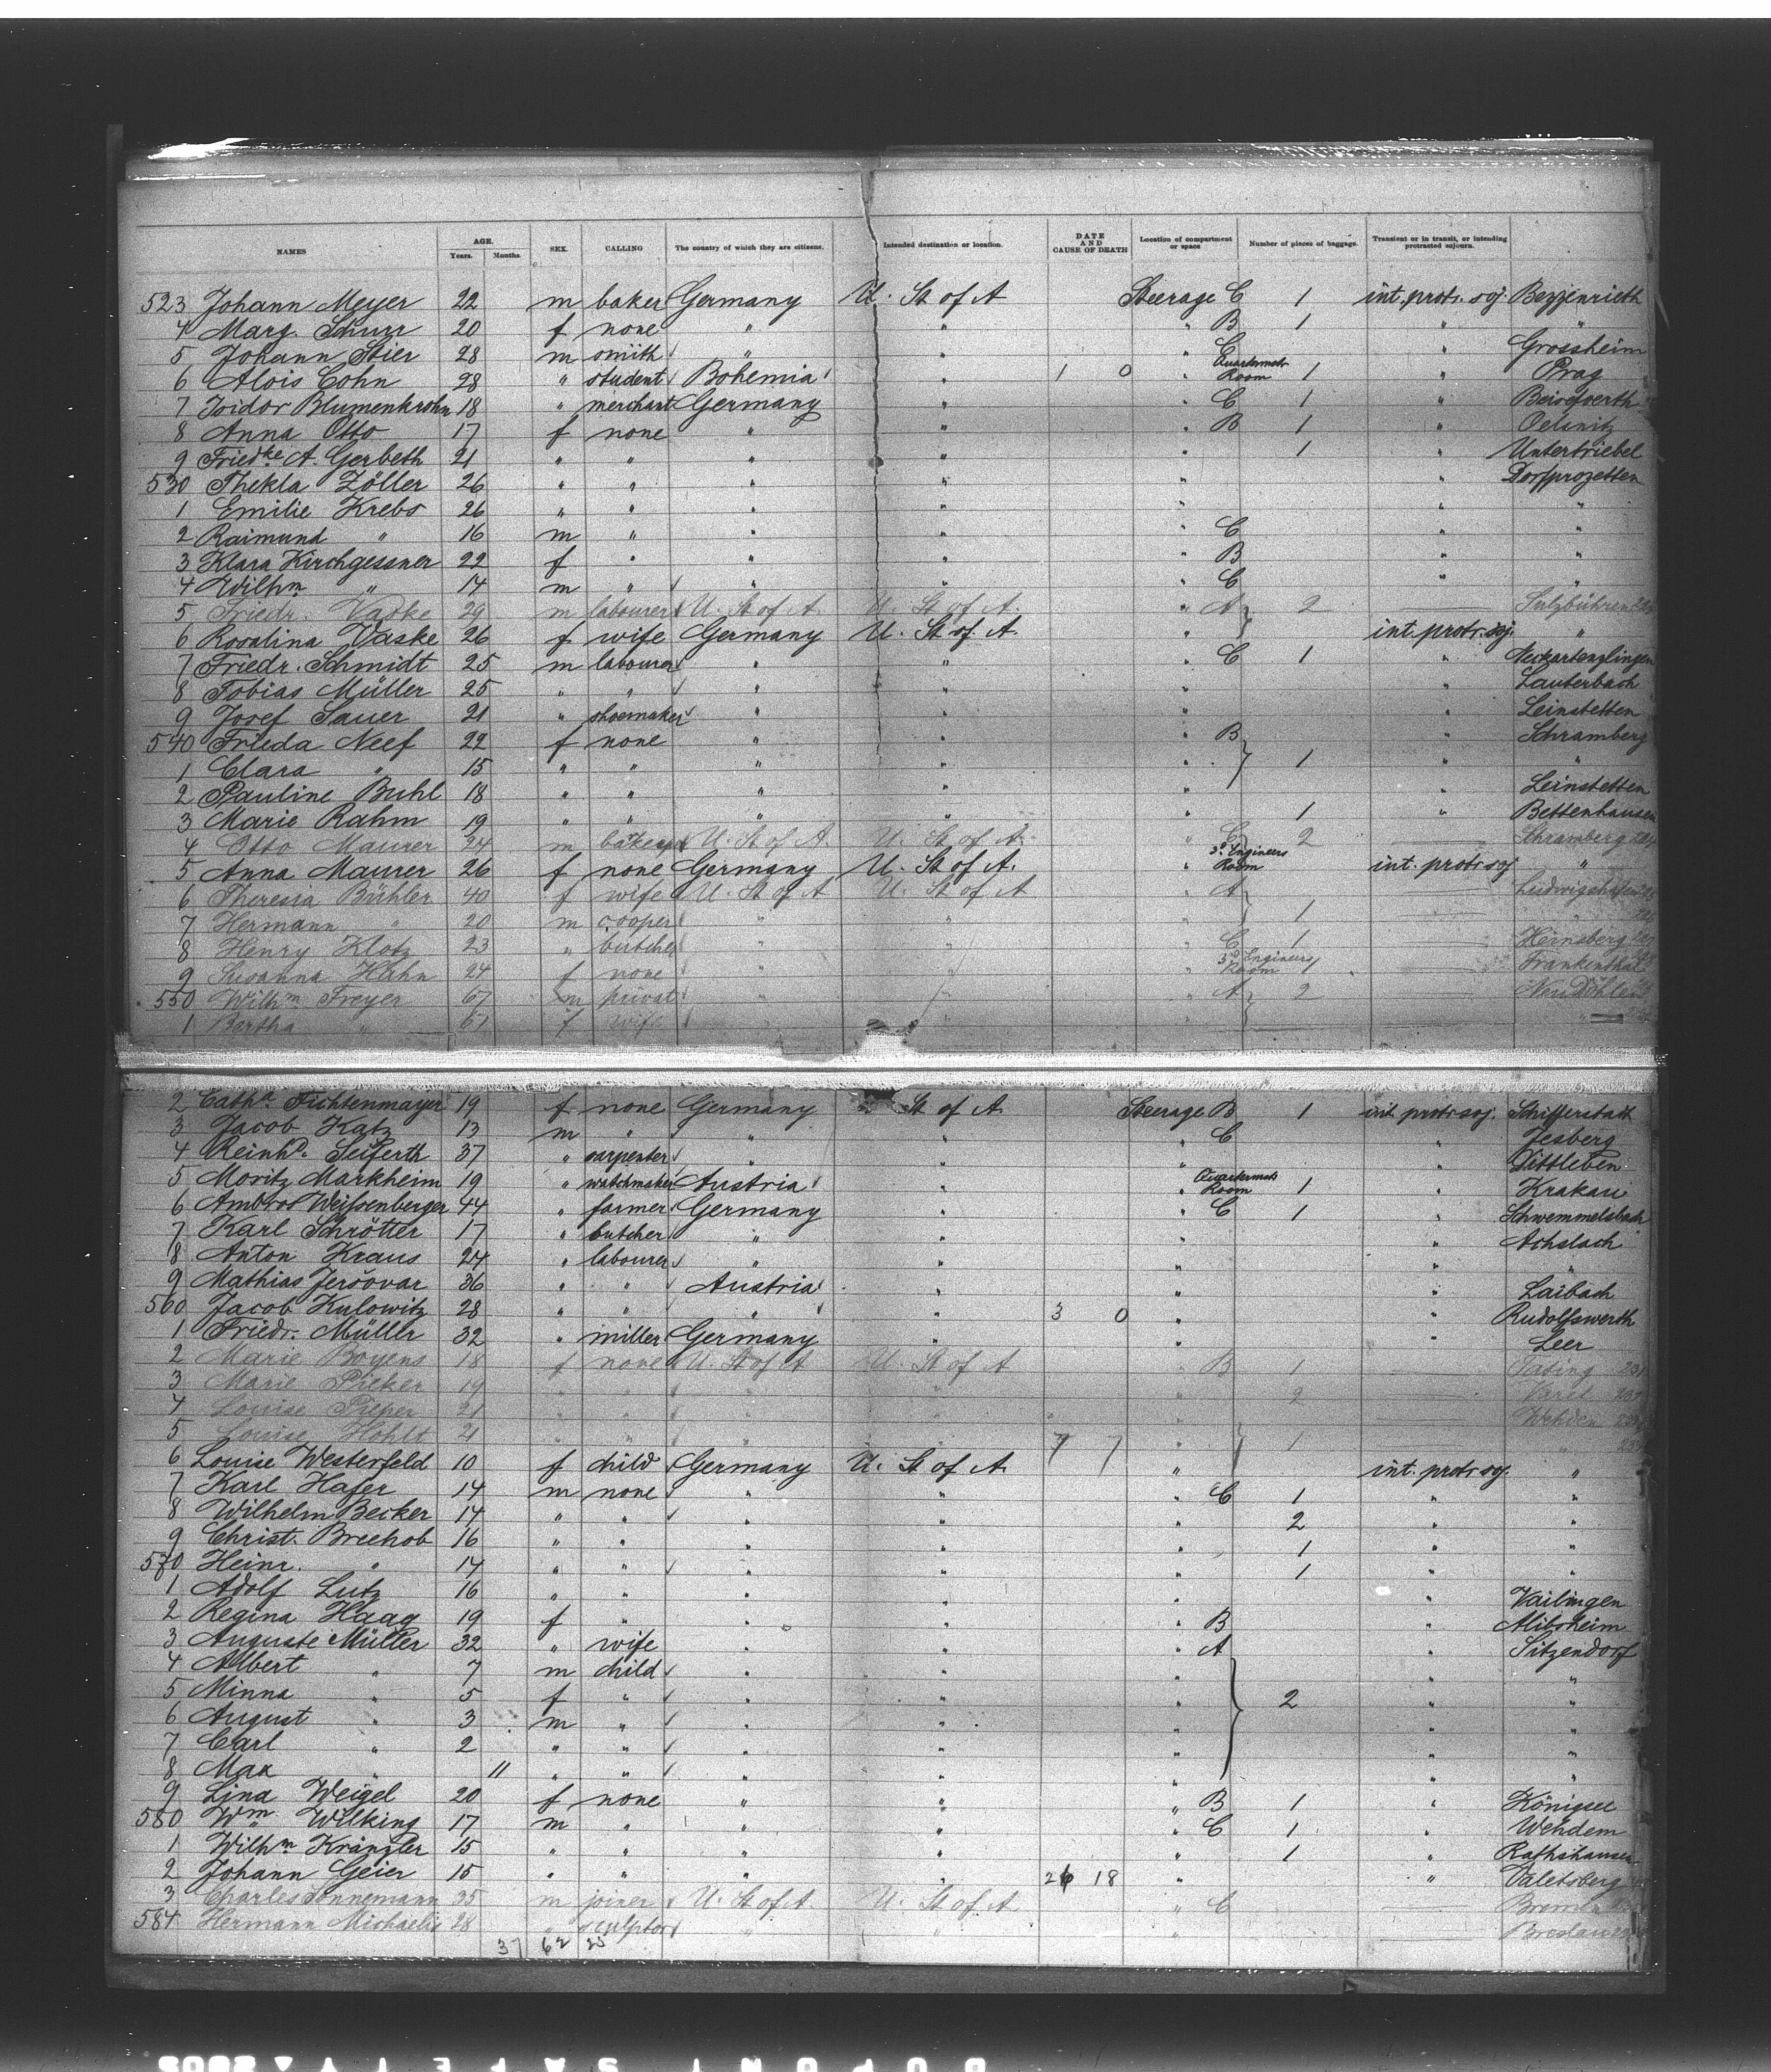 NAMES AGE. Years. Months. SEX. CALLING The country of which they are citizens. Intended destination or location. DATE AND CAUSE OF DEATH Location of compartment or space Number of pieces of baggage. Transient or in transit, or intending protracted sojourn.
523 Johann Meyer 22 m baker Germany U. St of A Steerage C 1 int. protr. soj. Bezzenrieth
4 Marg. Schurr 20 f none " " " B 1 " "
5 Johann Stier 28 m smith " " " C " Grossheim
6 Alois Cohn 28 " student Bohemia " 1 0 " Quartermstr Room 1 " Prag
7 Isidor Blumenkrohn 18 " merchant Germany " " C 1 "
8 Anna Otto 17 f none " " " B 1 " Oelsnitz
9 Friedke A. Gerbeth 21 " " " " " 1 " Untertriebel
530 Thekla Zöller 26 " " " " " " Dorfprozetten
1 Emilie Krebs 26 " " " " " " "
2 Raimund " 16 m " " " " C " "
3 Klara Kirchgessner 22 f " " " " B " "
4 Wilhm " 14 m " " " " C " "
5 Friedr. Vaske 29 m labourer U. St of A. U. St of A. " A 2
6 Rosalina Vaske 26 f wife Germany U. St of A. " int. protr. soj. "
7 Friedr. Schmidt 25 m labourer " " " C 1 " Neckartenzlingen
8 Tobias Müller 25 " " " " " " Lauterbach
9 Josef Sauer 21 " shoemaker " " " " Leinstetten
540 Frieda Neef 22 f none " " " B " Schramberg
1 Clara " 15 " " " " " 1 " "
2 Pauline Buhl 18 " " " " " " Leinstetten
3 Marie Rahm 19 " " " " " 1 " Bettenhausen
4 Otto Maurer 24 m baker U. St of A. U. St of A. " C 2 Schramberg
5 Anna Maurer 26 f none Germany U. St of A. " 3d Engineers Room int. protr soj "
6 Theresia Bühler 40 f wife U. St of A U. St of A " A Ludwigshafen
7 Hermann " 20 m cooper " " " 1 "
8 Henry Klotz 23 " butcher " " " C 1 Heinsberg
9 Susanna Hahn 24 f none " " " 3d Engineers Room 1 Frankenthal
550 Wilhm Freyer 67 m privat " " " A 2
1 Bertha " 61 f wife "
2 Catha Fichtenmayer 19 f none Germany St of A Steerage B 1 int protr soj. Schifferstadt
3 Jacob Katz 13 m " " " " C " Jesberg
4 Reinhd. Seiferth 37 " carpenter " " " " Tittleben
5 Moritz Markheim 19 " watchmaker Austria " " Quartermstr Room 1 " Krakau
6 Ambros Weissenberger 44 " farmer Germany " " C 1 " Schwemmelsbach
7 Karl Schrötter 17 " butcher " " " " Achslach
8 Anton Kraus 24 " labourer " " " " "
9 Mathias Jersovar 36 " " Austria " " " Laibach
560 Jacob Kulowitz 28 " " " " 3 0 " " Rudolfswerth
1 Friedr. Müller 32 " miller Germany " " " Leer
2 Marie Boyens 18 f none U. St of A U. St of A " B 1 Tating
3 Marie Pieker 19 " " " " " 2 Varel
4 Louise Pieper 21 " " " " " Wehden
5 Louise Hohlt 21 " " " " 7 7 " 1 "
6 Louise Westerfeld 10 f child Germany U. St of A. " int. protr soj. "
7 Karl Hafer 14 m none " " " C 1 " "
8 Wilhelm Becker 14 " " " " " 2 " "
9 Christ. Breehob 16 " " " " " 1 " "
570 Heinr. " 14 " " " " " 1 " "
1 Adolf Lutz 16 " " " " " " Vaihingen
2 Regina Haag 19 f " " " " B " Alibsheim
3 Auguste Müller 32 " wife " " " A " Sitzendorf
4 Albert " 7 m child " " " " "
5 Minna " 5 f " " " " 2 " "
6 August " 3 m " " " " " "
7 Carl " 2 " " " " " " "
8 Max " 11 " " " " " " "
9 Lina Weigel 20 f none " " " B 1 " Königsee
580 Wm. Wilking 17 m " " " " C 1 " Wehdem
1 Wilhm Kränzler 15 " " " " " 1 " Rathshausen
2 Johann Geier 15 " " " " 26 18 " " Valetsberg
3 Charles Sonnemann 35 m joiner U. St of A. U. St of A " C Bremen
584 Hermann Michaelis 28 " sculptor " " " Breslau
37 62 25